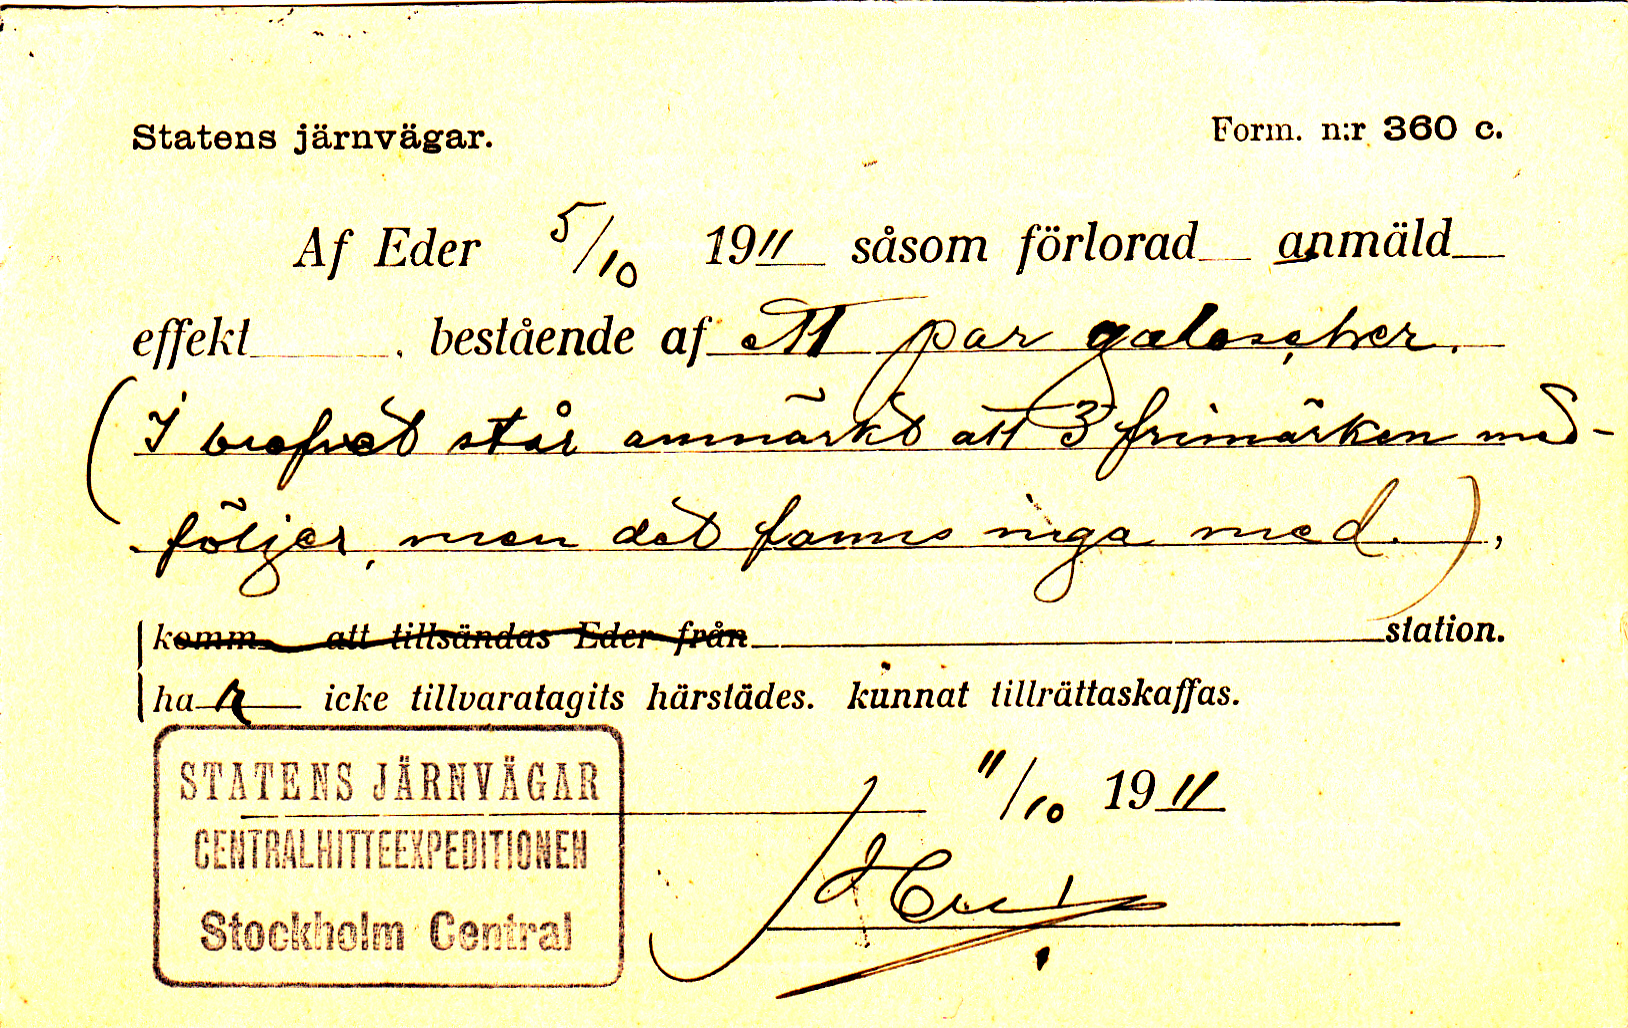 Statens järnvägar.
Form. n:r 360 c.
Af Eder 5/10 1911 såsom förlorad anmäld
effekt, bestående af ett par galoscher.
(I brefvet står anmärkt att 3 frimärken med-
följer, men det fanns inga med.),
komm att tillsändas Eder från station.
har icke tillvaratagits härstädes. kunnat tillrättaskaffas.
STATENS JÄRNVÄGAR
CENTRALHITTEEXPEDITIONEN
Stockholm Central
11/10 1911